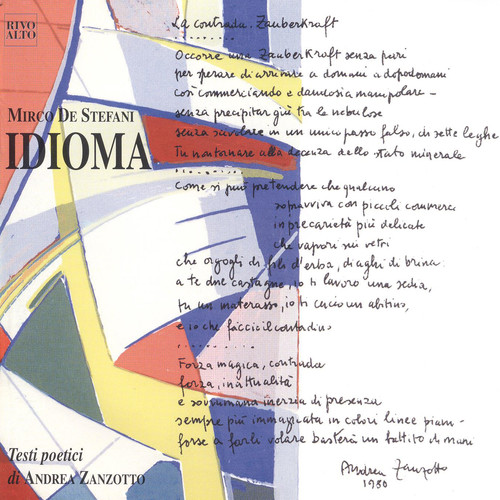 RIVO
ALTO
MIRCO DE STEFANI
IDIOMA
La contrada. Zauberkraft
. . . . . . . . .
Occorre una Zauberkraft senza pari
per sperare di arrivare a domani a dopodomani
così commerciando e manipolare –
senza precipitar giù tra le nebulose
senza in un unico passo falso, di sette leghe
Tu non tornare alla decenza dello stato minerale
. . . . . . . . .
Come si può pretendere che qualcuno
sopravviva con piccoli commerci
in precarietà più delicate
che vapori sui vetri
che orgogli di fili d'erba, di aghi di brina:
a te due castagne, io ti lavoro una sedia,
tu un materasso, io ti cucio un abitino,
e io che faccio il contadino
. . . . . . . .
Forza magica, contrada
forza, inattualità
e sovrumana inerzia di presenza
sempre più immagicata in colori linee piani –
forse a farla volare basterà un battito di mani
Andrea Zanzotto
1980
Testi poetici
di ANDREA ZANZOTTO